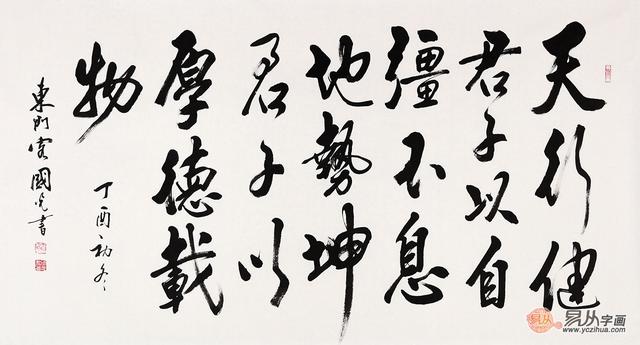 天行健
君子以自
彊不息
地勢坤
君子以
厚德載
物
丁酉初冬
東門 國光書
易从 易从字画
www.yczihua.com